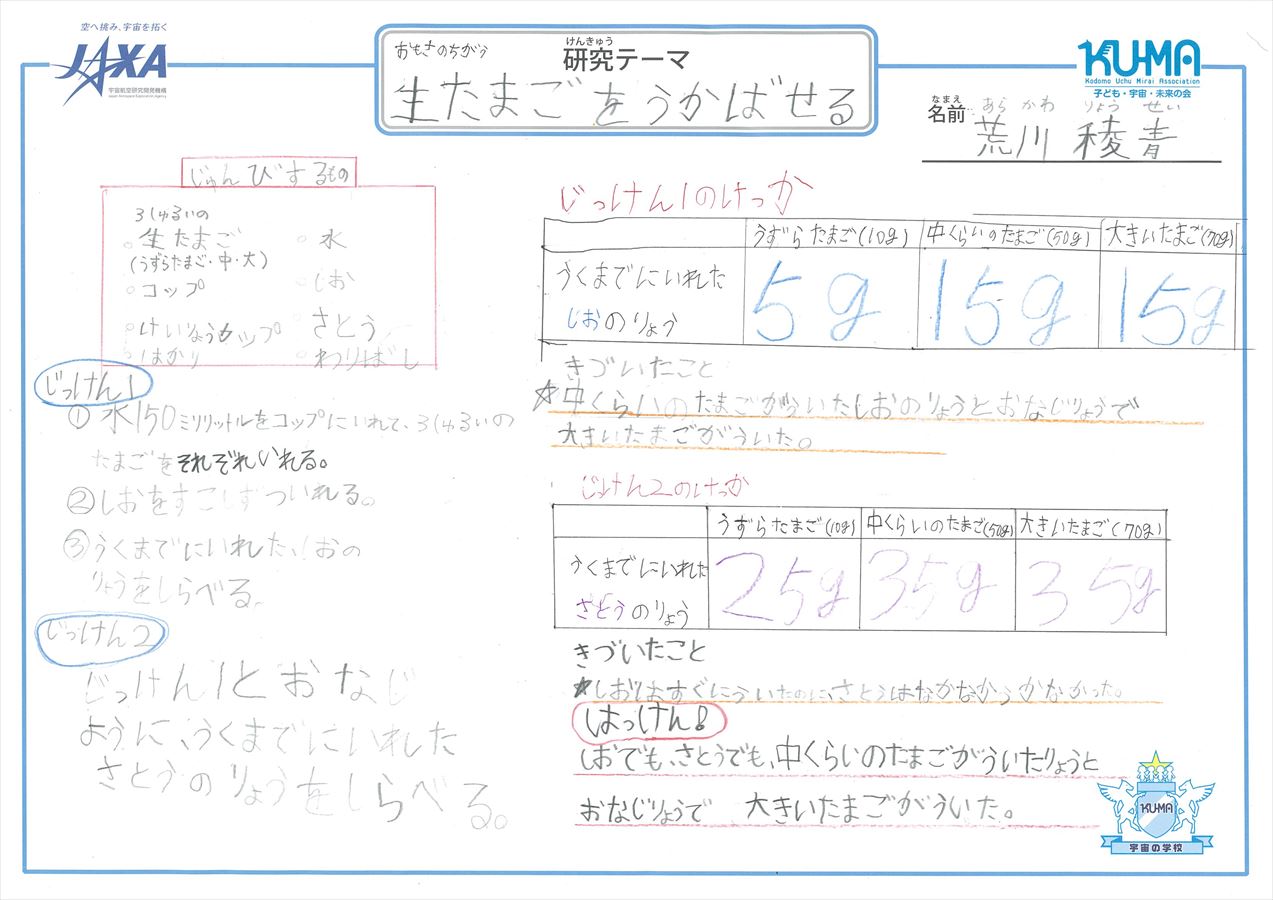 空へ挑み、宇宙を拓く
JAXA
宇宙航空研究開発機構
Japan Aerospace Exploration Agency
おもさのちがう
けんきゅう
研究テーマ
生たまごをうかばせる
KU-MA
Kodomo Uchu Mirai Association
子ども・宇宙・未来の会
なまえ
名前
あらかわ りょうせい
荒川 稜青
じゅんびするもの
3しゅるいの
○生たまご
(うずらたまご・中・大)
○コップ
○けいりょうカップ
○はかり
○水
○しお
○さとう
○わりばし
じっけん1
①水150ミリリットルをコップにいれて、3しゅるいの
たまごをそれぞれいれる。
②しおをすこしずついれる。
③うくまでにいれたしおの
りょうをしらべる。
じっけん2
じっけん1とおなじ
ように、うくまでにいれした
さとうのりょうをしらべる。
じっけん1のけっか
うずらたまご(10g) 中くらいのたまご(50g) 大きいたまご(70g)
うくまでにいれた
しおのりょう
5g 15g 15g
きづいたこと
☆中くらいのたまごがういたしおのりょうとおなじりょうで
大きいたまごがういた。
じっけん2のけっか
うずらたまご(10g) 中くらいのたまご(50g) 大きいたまご(70g)
うくまでにいれた
さとうのりょう
25g 35g 35g
きづいたこと
★しおはすぐにういたのに、さとうはなかなかうかなかった。
はっけん!
しおでも、さとうでも、中くらいのたまごがういたりょうと
おなじりょうで 大きいたまごがういた。
KU-MA
宇宙の学校